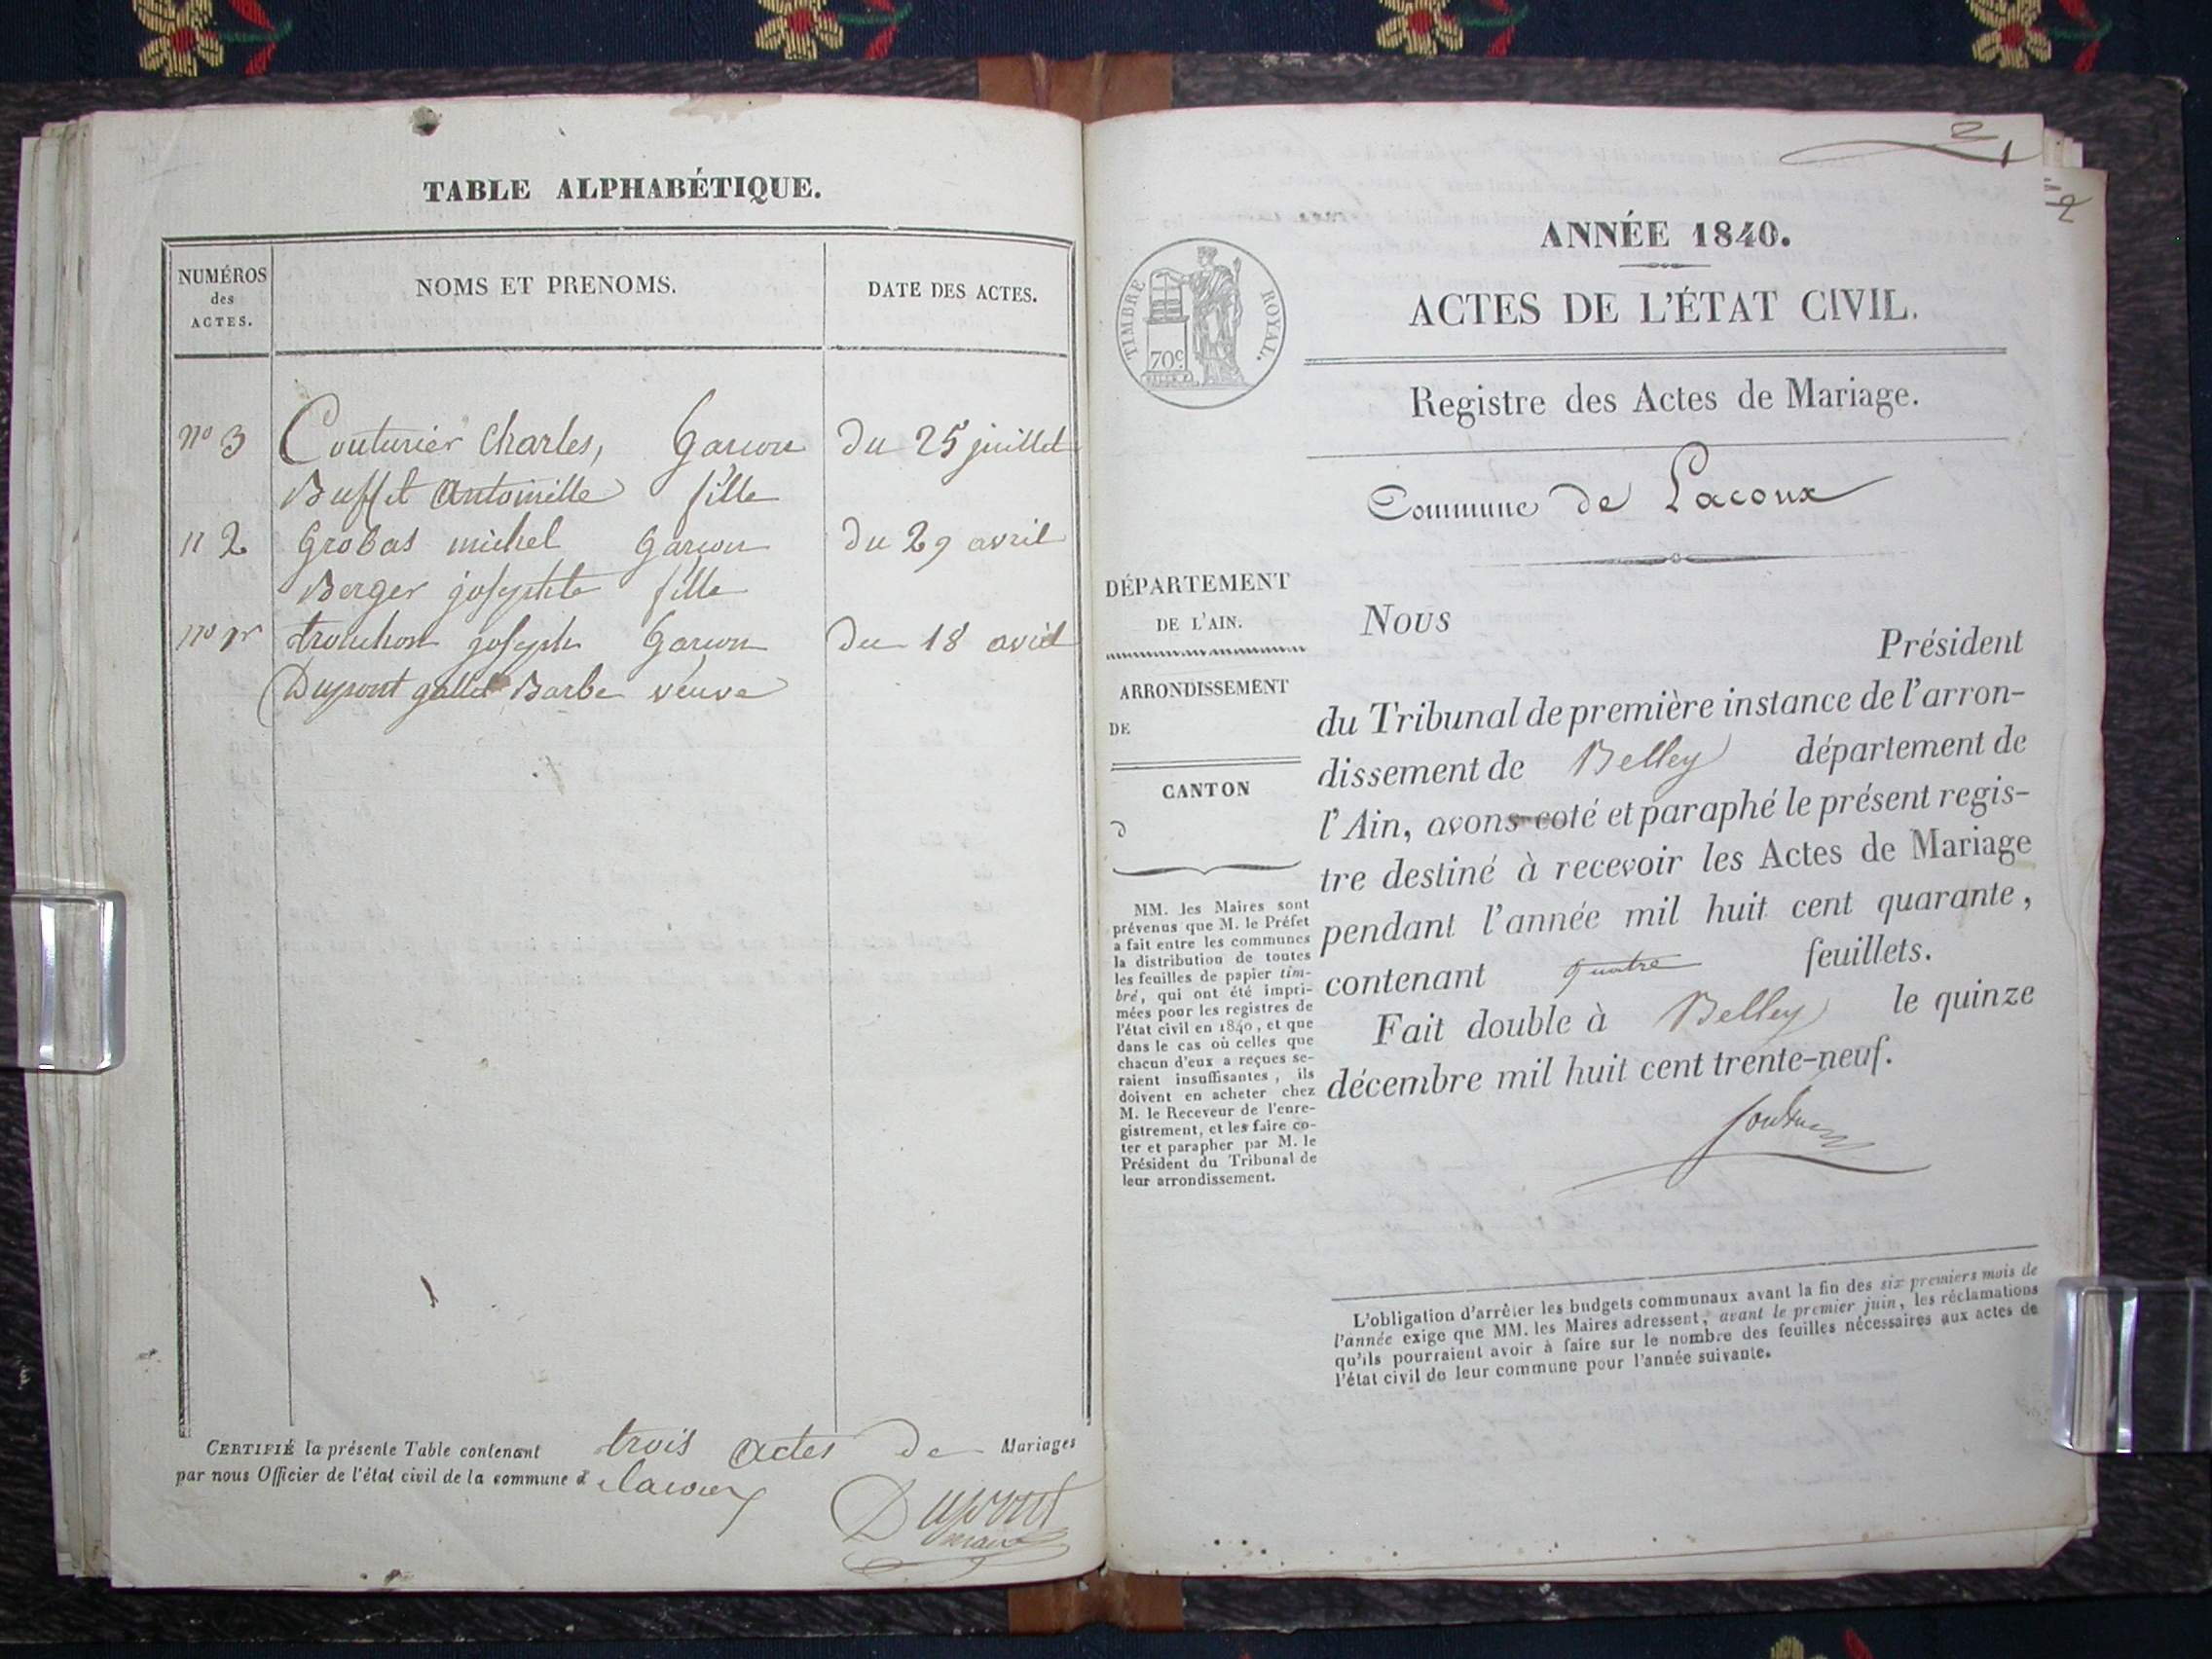 TABLE ALPHABÉTIQUE.
NUMÉROS
des
ACTES.
NOMS ET PRENOMS.
DATE DES ACTES.
nº 3 Couturier Charles, Garcon du 25 juillet
Buffet Antoinette fille
n 2 Grobas michel Garcon du 29 avril
Berger josephte fille
nº 1r trouchon joseph Garcon du 18 avril
Dupont gallet Barbe veuve
CERTIFIÉ la présente Table contenant trois actes de Mariages
par nous Officier de l'état civil de la commune d lacoux
Dupont
maire
2
ANNÉE 1840.
ACTES DE L'ÉTAT CIVIL.
TIMBRE ROYAL.
70c
Registre des Actes de Mariage.
Commune de Lacoux
DÉPARTEMENT
DE L'AIN.
ARRONDISSEMENT
DE
CANTON
D
MM. les Maires sont
prévenus que M. le Préfet
a fait entre les communes
la distribution de toutes
les feuilles de papier tim-
bré, qui ont été impri-
mées pour les registres de
l'état civil en 1840, et que
dans le cas où celles que
chacun d'eux a reçues se-
raient insuffisantes, ils
doivent en acheter chez
M. le Receveur de l'enre-
gistrement, et les faire co-
ter et parapher par M. le
Président du Tribunal de
leur arrondissement.
Nous
Président
du Tribunal de première instance de l'arron-
dissement de Belley département de
l'Ain, avons coté et paraphé le présent regis-
tre destiné à recevoir les Actes de Mariage
pendant l'année mil huit cent quarante,
contenant quatre feuillets.
Fait double à Belley le quinze
décembre mil huit cent trente-neuf.
L'obligation d'arrêter les budgets communaux avant la fin des six premiers mois de
l'année exige que MM. les Maires adressent, avant le premier juin, les réclamations
qu'ils pourraient avoir à faire sur le nombre des feuilles nécessaires aux actes de
l'état civil de leur commune pour l'année suivante.
2